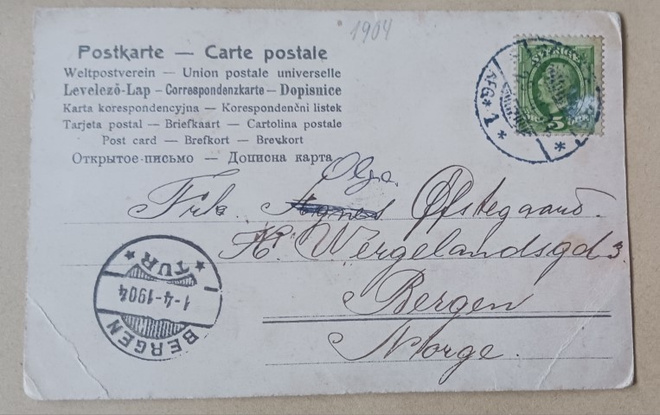 1904
Postkarte — Carte postale
Weltpostverein — Union postale universelle
Levelező-Lap — Correspondenzkarte — Dopisnice
Karta korespondencyjna — Korespondenční listek
Tarjeta postal — Briefkaart — Cartolina postale
Post card — Brefkort — Brevkort
Открытое письмо — Дописна карта
Olga.
Frk. Agnes Øfstegaard.
H. Wergelandsgd 3.
Bergen
Norge.
5
KFG * 1 *
BERGEN
1-4-1904
* TUR *